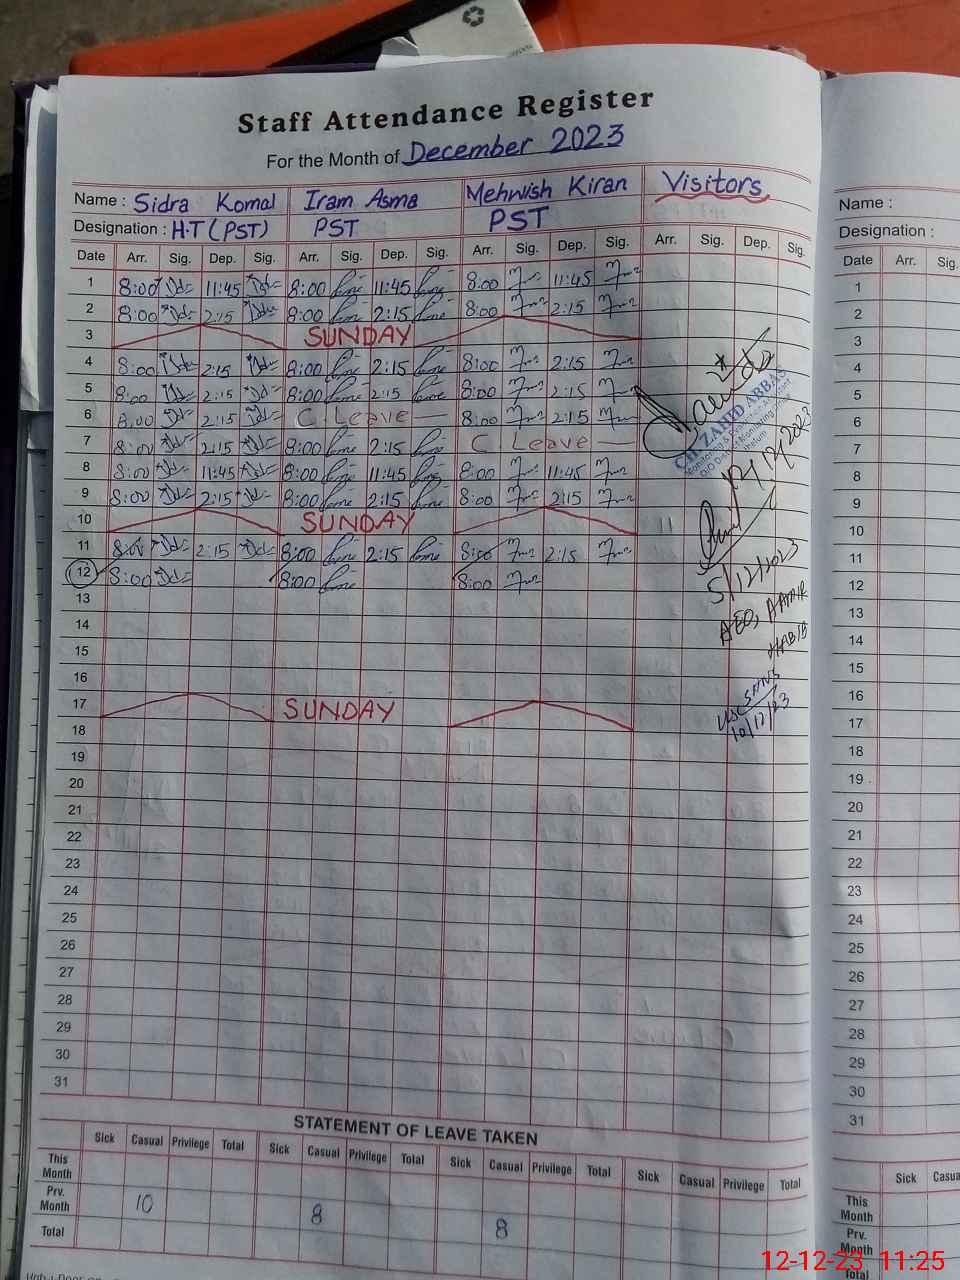 Staff Attendance Register
For the Month of December 2023
Name : Sidra Komal Iram Asma Mehwish Kiran Visitors
Designation : H.T (PST) PST PST
Date Arr. Sig. Dep. Sig. Arr. Sig. Dep. Sig. Arr. Sig. Dep. Sig. Arr. Sig. Dep. Sig.
1 8:00 11:45 8:00 11:45 8:00 11:45
2 8:00 2:15 8:00 2:15 8:00 2:15
3 SUNDAY
4 8:00 2:15 8:00 2:15 8:00 2:15
5 8:00 2:15 8:00 2:15 8:00 2:15
6 8:00 2:15 C. Leave 8:00 2:15
7 8:00 2:15 8:00 2:15 C. Leave
8 8:00 11:45 8:00 11:45 8:00 11:45
9 8:00 2:15 8:00 2:15 8:00 2:15
10 SUNDAY
11 8:00 2:15 8:00 2:15 8:00 2:15
12 8:00 8:00 8:00
13
14
15
16
17 SUNDAY
18
19
20
21
22
23
24
25
26
27
28
29
30
31
CH. ZAHID ABBAS
5/12/2023
AEO, AAMIR
HABIB
10/12/23
STATEMENT OF LEAVE TAKEN
Sick Casual Privilege Total Sick Casual Privilege Total Sick Casual Privilege Total Sick Casual Privilege Total
This Month
Prv. Month 10 8 8
Total
Name :
Designation :
Date Arr. Sig.
1
2
3
4
5
6
7
8
9
10
11
12
13
14
15
16
17
18
19
20
21
22
23
24
25
26
27
28
29
30
31
Sick
This Month
Prv. Month
Total
12-12-23 11:25